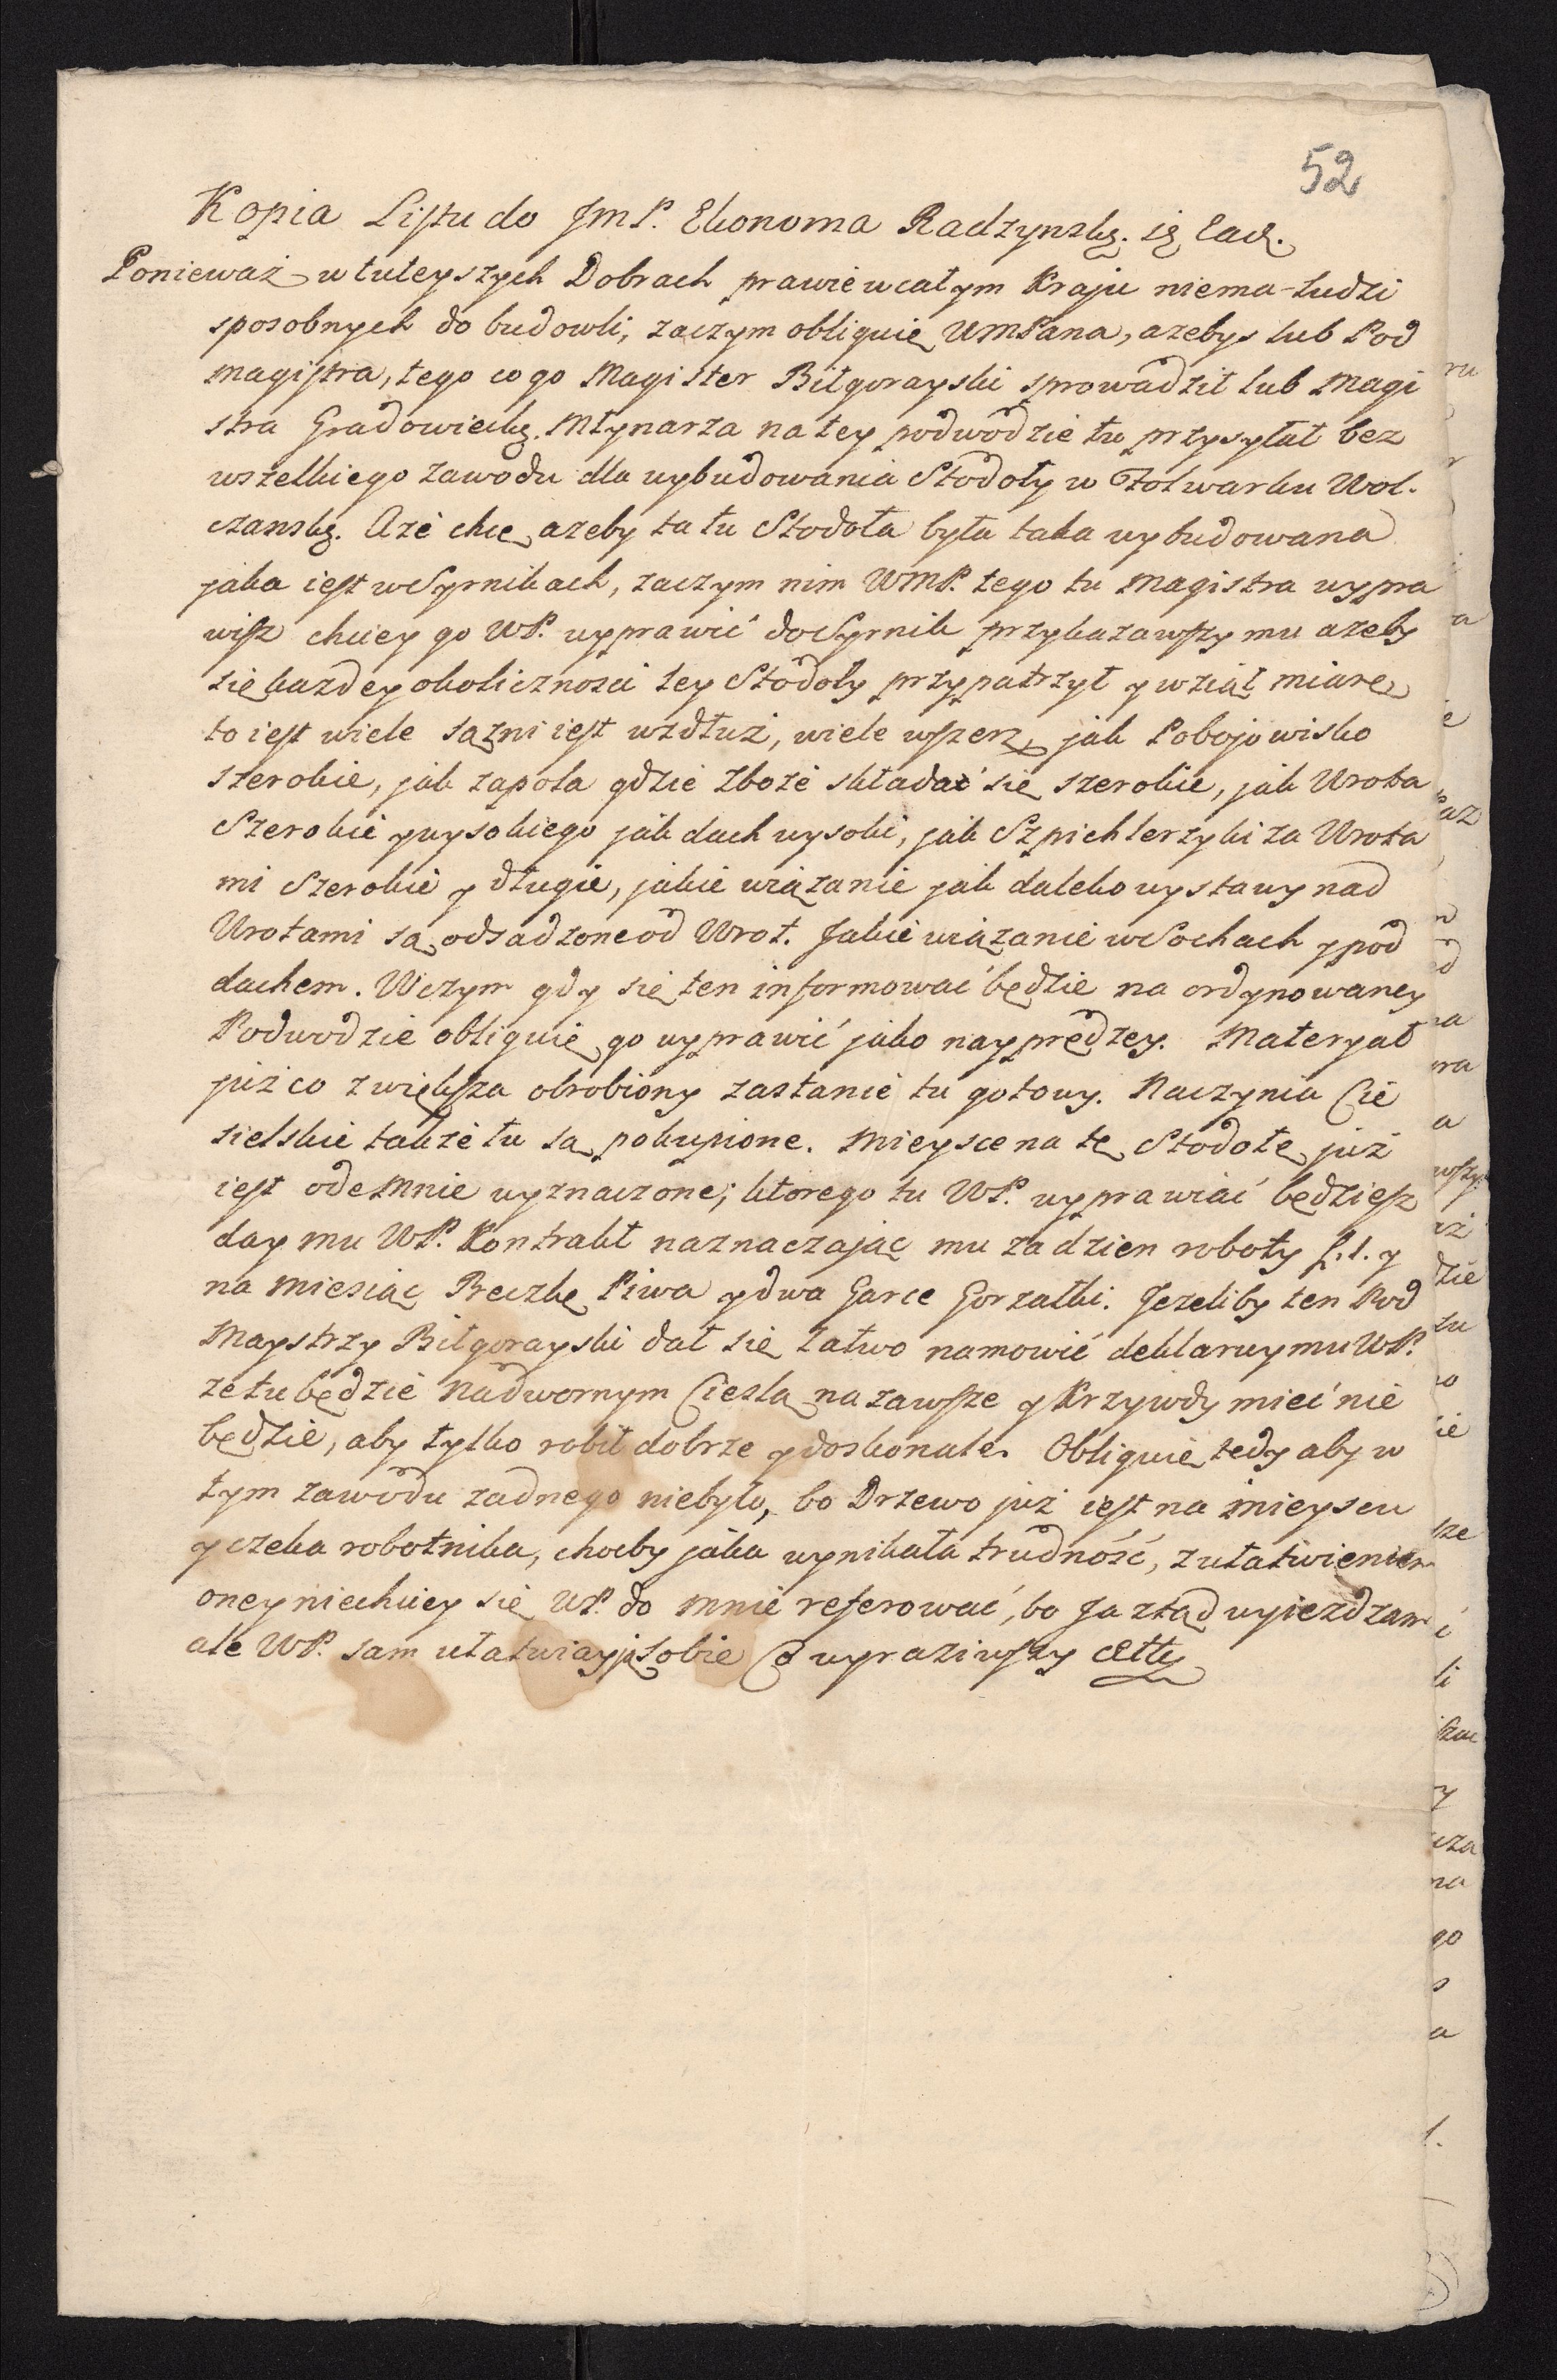 52
Kopia Listu do JmP. Ekonoma Radzynskg.
Ponieważ w tuteyszych Dobrach prawie w całym Kraju niema ludzi
sposobnych do budowli, zaczym obliguię WMPana, azebys lub Pod
magistra, tego co go Magister Biłgorayski sprowadził lub Magi
stra Gradowieckg. Młynarza na tey podwodzie tu przysyłał bez
wszelkiego zawodu dla wybudowania Stodoły w Folwarku Wol.
czanskg. A że chcę azeby ta tu Stodoła była taka wybudowana
jaka iest w Syrnikach, zaczym nim WMP. tego tu Magistra wypra
wisz chciey go WP. wyprawić do Syrnik przykazawszy mu azeby
się kazdey okolicznosci tey Stodoły przypatrzył y wziął miarę
to iest wiele sązni iest wzdłuż, wiele wszerz, jak Pobojowisko
szerokie, jak zapola gdzie zboże składać się szerokie, jak Wrota
Szerokie y wysokiego jak dach wysoki, jak Szpichlerzyki za Wrota
mi Szerokie y długie, jakie wiązanie jak daleko wystawy nad
Wrotami są odsadzone od Wrot. Jakie wiązanie w Sochach y pod
dachem. W czym gdy się ten informować będzie na ordynowaney
Podwodzie obliguię go wyprawić jako nayprędzey. Materyał
już co zwiększa obrobiony zastanie tu gotowy. Naczynia Cie
sielskie także tu są pokupione. Mieysce na tę Stodołę już
iest odemnie wyznaczone; ktorego tu WP. wyprawiać będziesz
day mu WP. Kontrakt naznaczając mu za dzien roboty f. 1. y
na miesiąc Beczkę Piwa y dwa Garce Gorzałki. Jezeliby ten Pod
Maystrzy Biłgorayski dał się łatwo namowić deklaruy mu WP.
ze tu będzie Nadwornym Cieslą na zawsze y Krzywdy mieć nie
będzie, aby tylko robił dobrze y doskonale. Obliguię tedy aby w
tym zawodu zadnego niebyło, bo Drzewo już iest na mieyscu
y czeka robotnika, choćby jaka wynikała trudność, z ułatwieniem
oney niechciey się WP. do mnie referować, bo Ja ztąd wyiezdzam
ale WP. sam ułatwiay sobie Co wyraziwszy